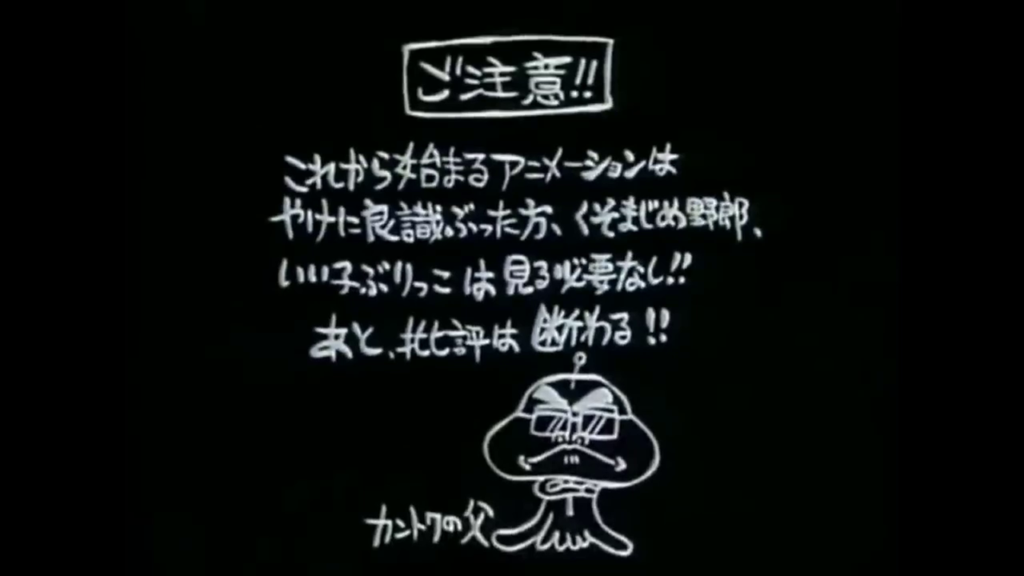 ご注意!!
これから始まるアニメーションは
やけに良識ぶった方、くそまじめ野郎、
いい子ぶりっこは見る必要なし!!
あと、批評は断わる!!
カントクの父